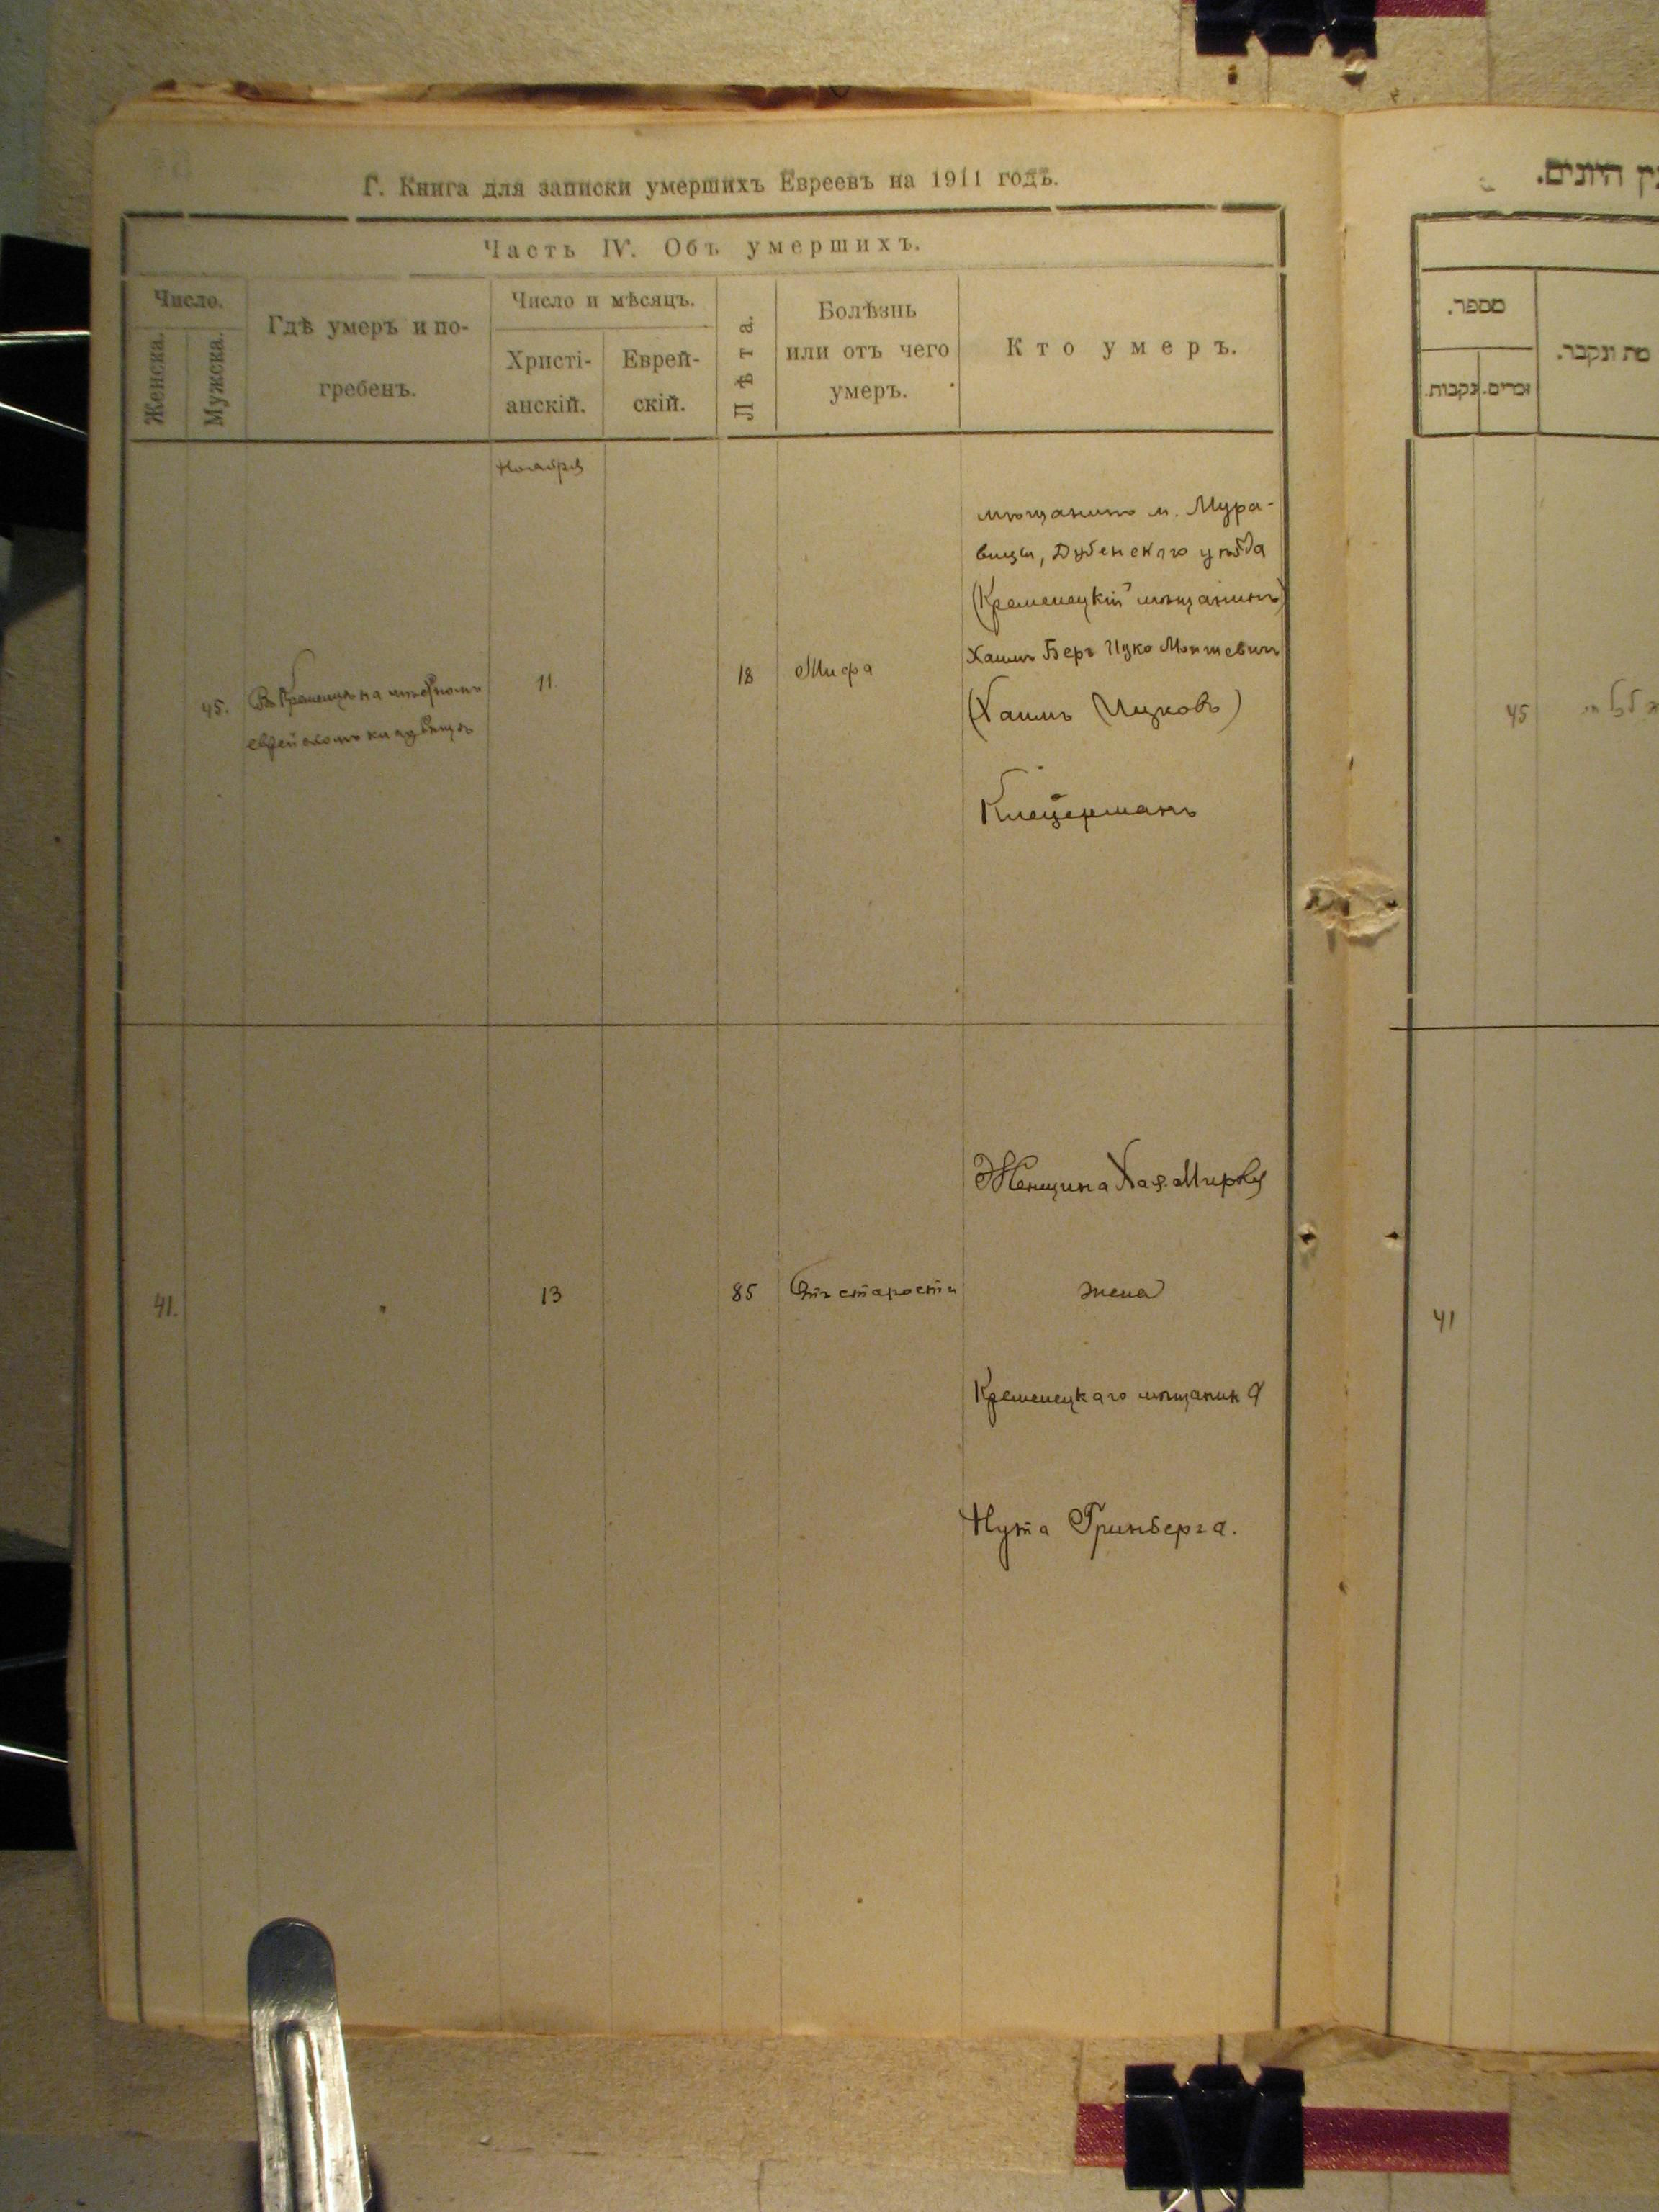 Г. Книга для записки умершихъ Евреевъ на 1911 годъ.
Часть IV. Объ умершихъ.
Число.
Женска.
Мужска.
Гдѣ умеръ и по-
гребенъ.
Число и мѣсяцъ.
Христі-
анскій.
Еврей-
скій.
Лѣта.
Болѣзнь
или отъ чего
умеръ.
Кто умеръ.
Ноабря
45.
Въ Кременцѣ на
еврейскомъ кладбищѣ
11.
18
Тифа
мѣщанинъ м. Мура-
вицы, Дубенскаго уѣзда
(Кременецкій мѣщанинъ)
Хаимъ Беръ Ицко Мошкевичъ
(Хаимъ Ицковъ)
Клейерманъ
41.
"
13
85
Отъ старости
Женщина Хая
жена
Кременецкаго мѣщанина
Нута Гринберга.
מספר.
זכרים.
נקבות.
מת ונקבר.
45
41